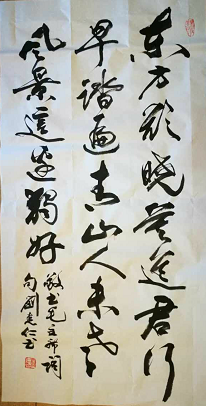 东方欲晓莫道君行
早踏遍青山人未老
风景這边獨好
敬书毛主席词
句劉仁书